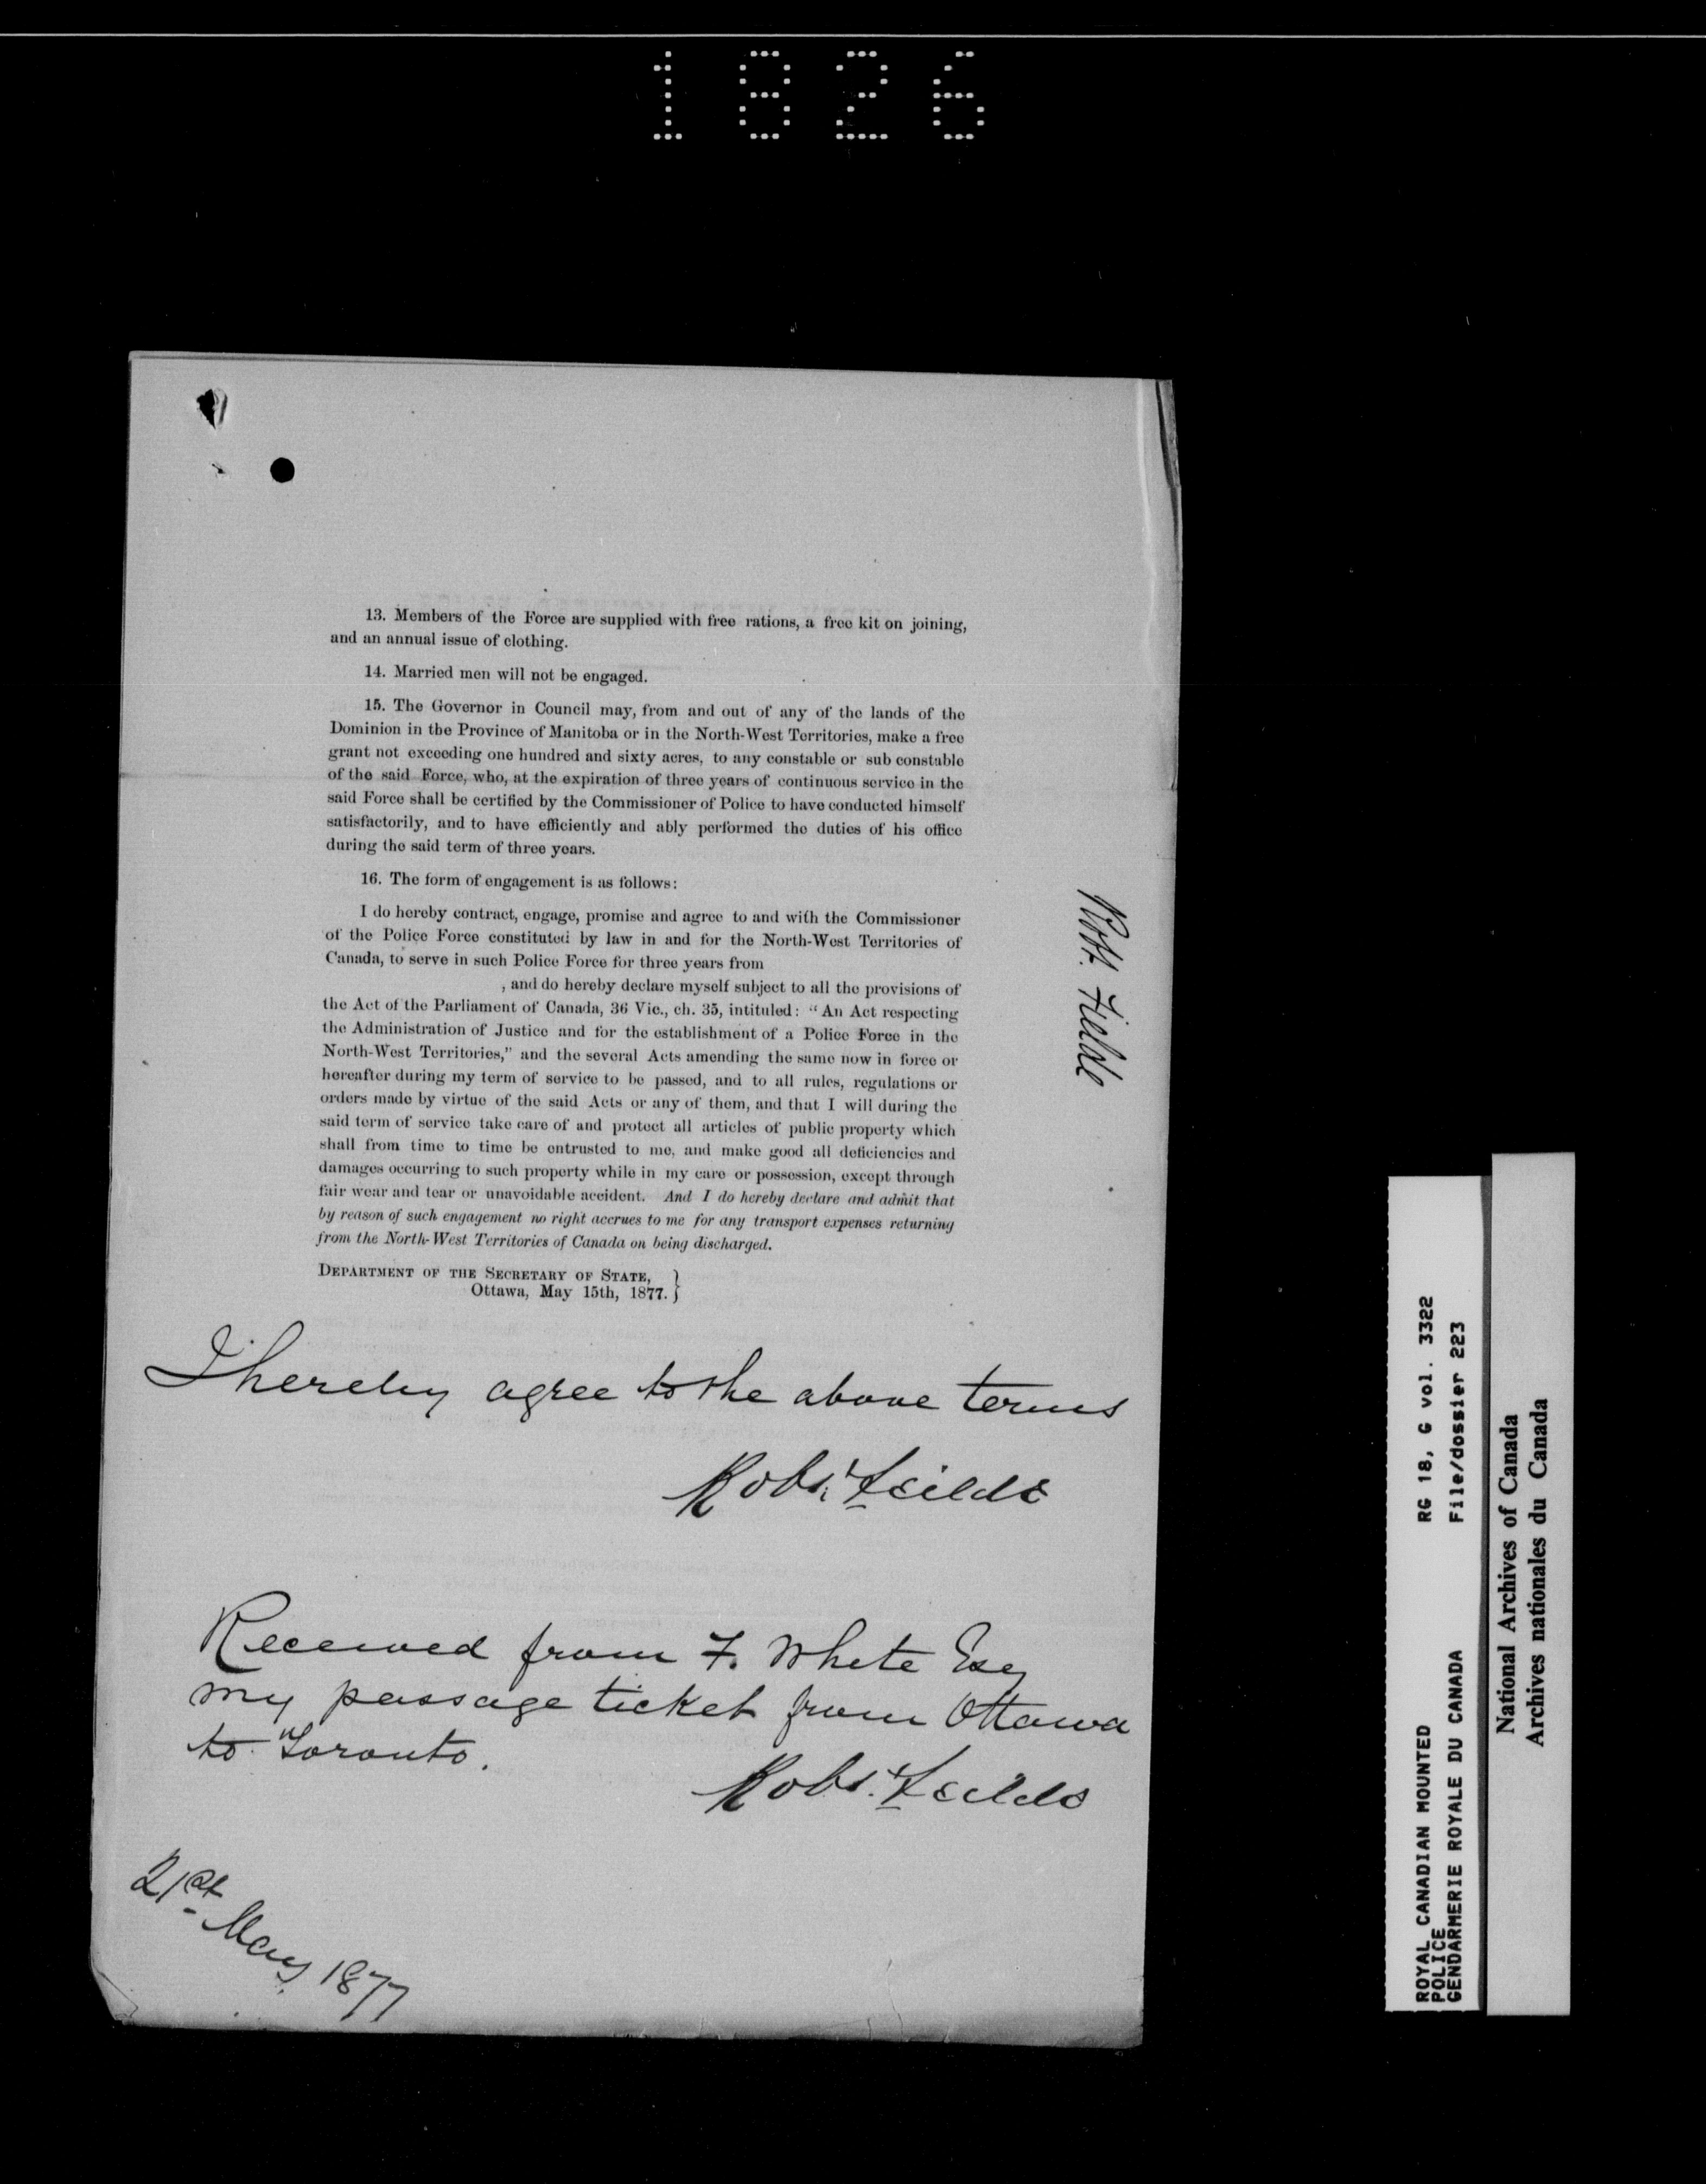 1826
13. Members of the Force are supplied with free rations, a free kit on joining,
and an annual issue of clothing.
14. Married men will not be engaged.
15. The Governor in Council may, from and out of any of the lands of the
Dominion in the Province of Manitoba or in the North-West Territories, make a free
grant not exceeding one hundred and sixty acres, to any constable or sub constable
of the said Force, who, at the expiration of three years of continuous service in the
said Force shall be certified by the Commissioner of Police to have conducted himself
satisfactorily, and to have efficiently and ably performed the duties of his office
during the said term of three years.
16. The form of engagement is as follows:
I do hereby contract, engage, promise and agree to and with the Commissioner
of the Police Force constituted by law in and for the North-West Territories of
Canada, to serve in such Police Force for three years from
, and do hereby declare myself subject to all the provisions of
the Act of the Parliament of Canada, 36 Vic., ch. 35, intituled: "An Act respecting
the Administration of Justice and for the establishment of a Police Force in the
North-West Territories," and the several Acts amending the same now in force or
hereafter during my term of service to be passed, and to all rules, regulations or
orders made by virtue of the said Acts or any of them, and that I will during the
said term of service take care of and protect all articles of public property which
shall from time to time be entrusted to me, and make good all deficiencies and
damages occurring to such property while in my care or possession, except through
fair wear and tear or unavoidable accident. And I do hereby declare and admit that
by reason of such engagement no right accrues to me for any transport expenses returning
from the North-West Territories of Canada on being discharged.
DEPARTMENT OF THE SECRETARY OF STATE, }
Ottawa, May 15th, 1877. }
I hereby agree to the above terms
Robt. Feilde
Received from F. White Esq
my passage ticket from Ottawa
to Toronto.
Robt. Feilde
21st May 1877
Robt. Fielde
ROYAL CANADIAN MOUNTED RG 18, G vol. 3322
POLICE File/dossier 223
GENDARMERIE ROYALE DU CANADA
National Archives of Canada
Archives nationales du Canada